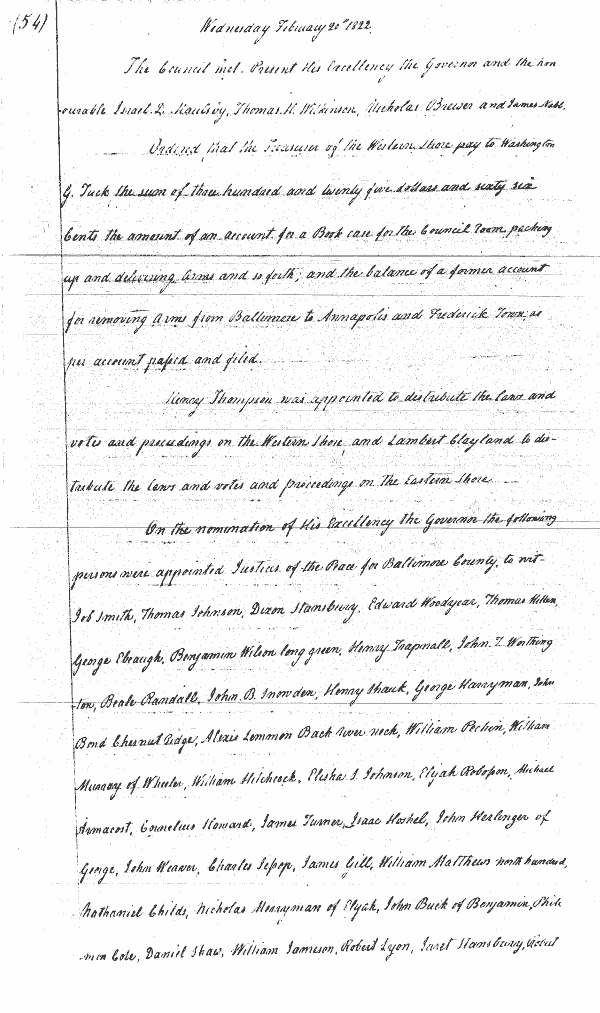 (54)
Wednesday February 20th 1822.
The Council met. Present His Excellency the Governor and the hon
ourable Israel D. Maulsby, Thomas H. Wilkinson, Nicholas Brewer and James Nabb.
Ordered, that the Treasurer of the Western Shore pay to Washington
G. Tuck the sum of three hundred and twenty five dollars and sixty six
Cents the amount of an account for a Book case for the Council room, packing
up and delivering Arms and so forth; and the balance of a former account
for removing Arms from Baltimore to Annapolis and Frederick Town; as
per account passed and filed.
Henry Thompson was appointed to distribute the laws and
votes and proceedings on the Western Shore, and Lambert Clayland to dis-
tribute the laws and votes and proceedings on the Eastern Shore.
On the nomination of His Excellency the Governor the following
persons were appointed Justices of the Peace for Baltimore County, to wit-
Job Smith, Thomas Johnson, Dixon Stansbury, Edward Woodyear, Thomas
George Ebaugh, Benjamin Wilson long green, Henry Trapnall, John T. Worthing
-ton, Beale Randall, John B. Snowden, Henry Shauk, George Harryman, John
Bond Chesnut Ridge, Alexis Lemmon Back river neck, William Pechin, William
Murray of Wheeler, William Hitchcock, Elisha S. Johnson, Elijah Robosson, Michael
Armacost, Cornelius Howard, James Turner, Isaac Hoshel, John Kerlinger of
George, John Weaver, Charles Jessop, James Gill, William Matthews north hundred,
Nathaniel Childs, Nicholas Merryman of Elijah, John Buck of Benjamin, Phile
-mon Cole, Daniel Shaw, William Jameson, Robert Lyon, Jaret Stansbury, Robert